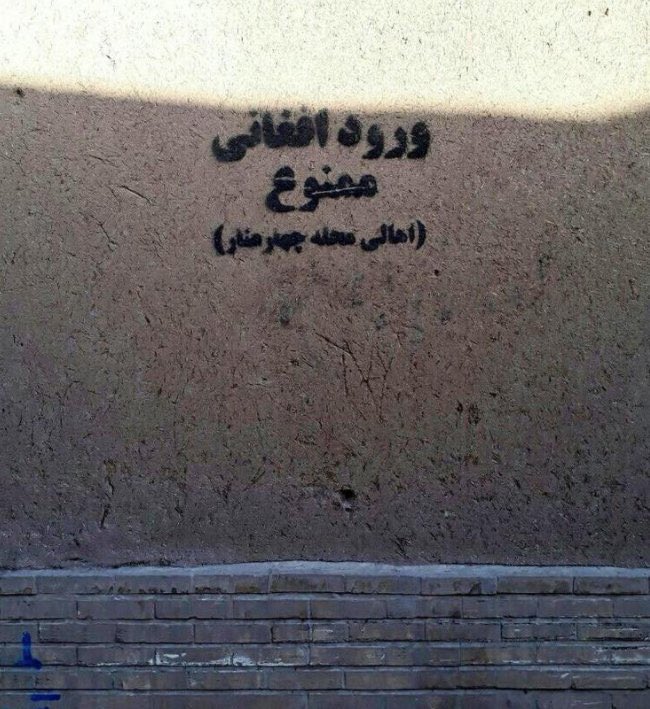 ورود افغانی
ممنوع
(اهالی محله چهارمنار)